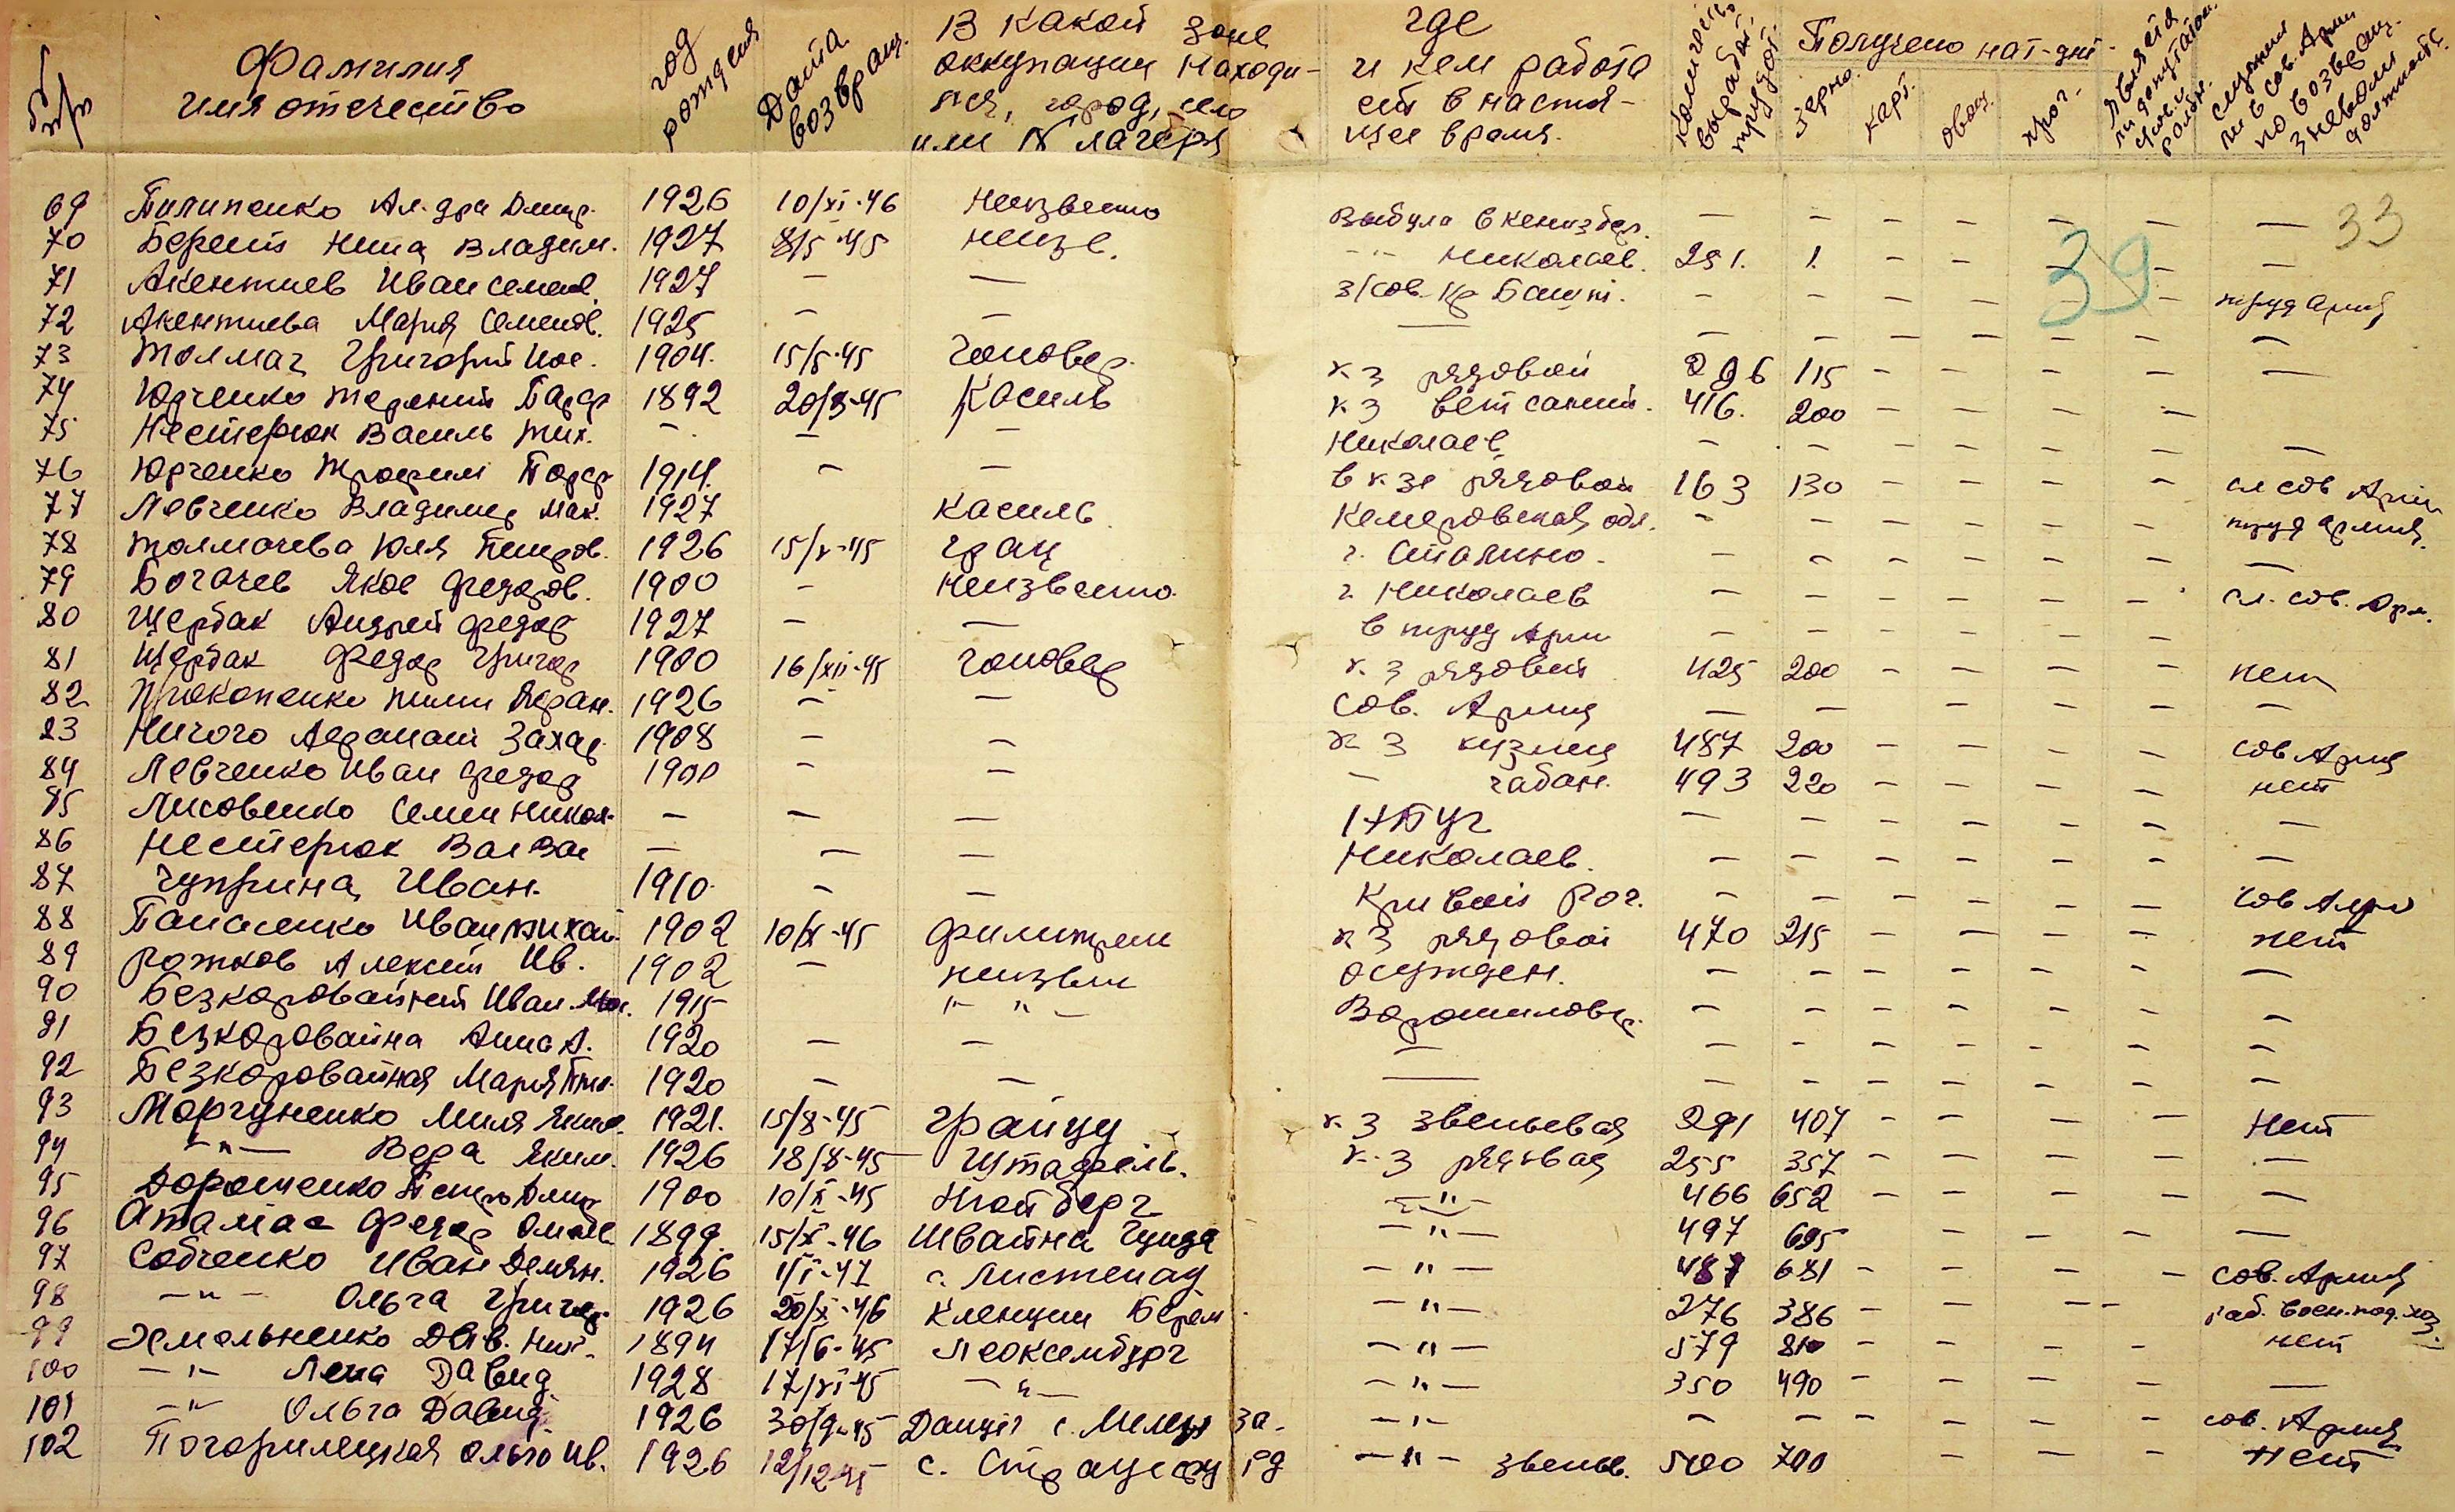 № п/п Фамилия имя отечество год рождения Дата возвращ. В какой зоне оккупации находился, город, село или № лагеря где и кем работает в настоящее время. Количест. выработ. трудод. Получено на т-дни зерно. карт. овощ. проч.
69 Пилипенко Ал-дра Дмитр. 1926 10/XI-46 Неизвестно Выбула в — — — — — — — 33
70 Берест Нина Владим. 1927 8/5-45 неизв. -"- Николаев. 251. 1. — — — — — 39
71 Акентиев Иван Семен. 1927 — — — — — — — — труд Армия
72 Акентиева Мария Семенов. 1925 — — — — — — — — — —
73 Толмач Григорий Иос. 1904. 15/8-45 Гановер. к-з рядовой 296 115 — — — — —
74 Юрченко Терентий Парф 1892 20/8-45 Касиль к-з вет санит. 416. 200 — — — —
75 Нестерюк Василь Тих. — — — Николаев — — — — — — —
76 Юрченко Трофим Парф 1914. — — в к-зе рядовой 163 130 — — — — сл сов Арм
77 Левченко Владимир Мак. 1927 Касиль Кемеровская обл. — — — — — — труд армия.
78 Толмачева Юля Петров. 1926 15/X-45 Грац г. Сталино. — — — — — — —
79 Богачев Яков Федоров. 1900 — Неизвестно. г. Николаев — — — — — — сл. сов. Арм.
80 Щербак Андрей Федор 1927 — — в труд Арм — — — — — —
81 Щербак Федор Григор 1900 16/XII-45 Гановер к-з рядовий 425 200 — — — — нет
82 Прокопенко 1926 — — Сов. Армия — — — — — — —
83 Ничого Афанасий Захар. 1908 — — к-з кузнец 487 200 — — — — сов Армия
84 Левченко Иван Федор 1900 — — — чабан. 493 220 — — — — нет
85 Лисовенко Семен Никол. — — — — — — — — — —
86 Нестерюк Вас Вас — — — Николаев. — — — — — — —
87 Чуприна Иван. 1910. — — Кривой Рог. — — — — — — сов Арм
88 Панасенко Иван Михай. 1902 10/X-45 к-з рядовой 470 215 — — — — нет
89 Рожков Алексей Ив. 1902 — неизвест осужден. — — — — — — —
90 Безкоровайний Иван 1915 -"-"- Ворошиловгр. — — — — — — —
91 Безкоровайна Анна А. 1920 — — — — — — — — — —
92 Безкоровайная Мария 1920 — — — — — — — — — —
93 Моргуненко Миля Яким. 1921. 15/8-45 Грайцу к-з звеньевая 291 407 — — — — Нет
94 -"- Вера Яким. 1926 18/8-45 Штафель. к-з рядовая 255 357 — — — — —
95 Дорошенко Петро Дмитр 1900 10/X-45 Нюйберг -"- 466 652 — — — — —
96 Атамас Федор 1899. 15/X-46 Швайна Гунда -"- 497 695 — — — —
97 Собченко Иван Демян. 1926 1/I-47 с. Листенау -"- 487 681 — — — — сов. Армия
98 -"- Ольга Григор. 1926 20/X-46 Кленции Берем. -"- 276 386 — — — — раб. воен. под. хоз.
99 Емельненко Дав. Ник. 1894 17/6-45 Леоксембург -"- 579 810 — — — — нет
100 -"- Лена Давид 1928 17/VI-45 -"- -"- 350 490 — — — — —
101 -"- Ольга Давид 1926 30/9-45 Данціг с. за. -"- — — — — — — сов. Армия
102 Погорилецкая Ольга Ив. 1926 12/12-45 с. -"- звеньев. 500 700 — — — нет